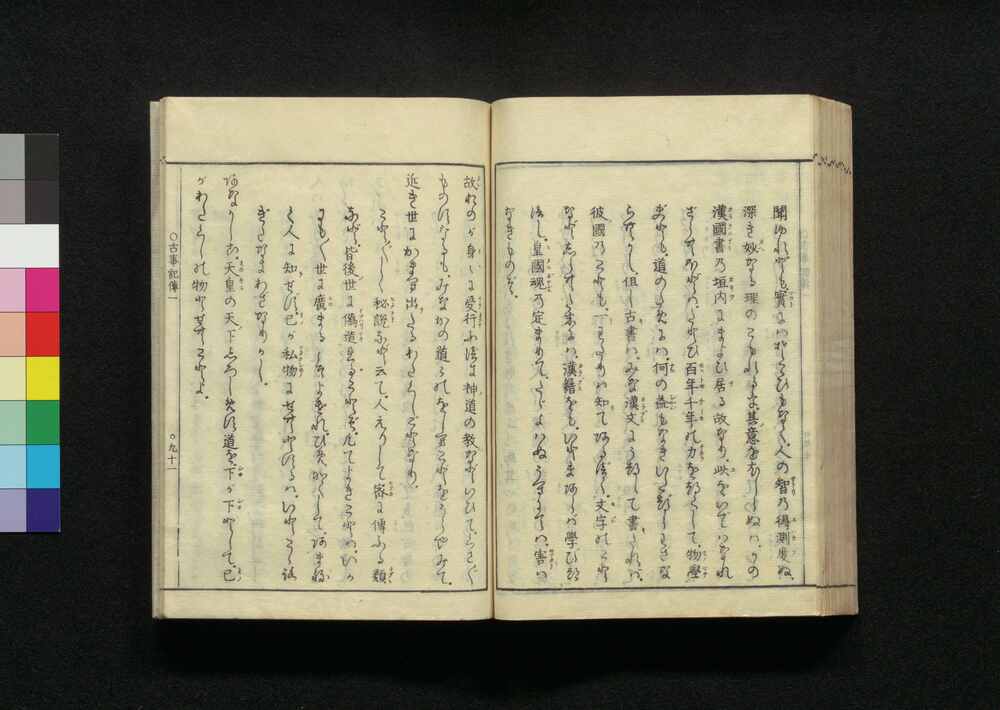 聞ゆれども、實にはそこひもなく、人の智の得測度ぬ、
深き妙なる理のこもれるを、其意をえしらぬは、かの
漢國書の垣内にまよひ居る故なり、此をいではなれ
ざらむほどは、たとひ百年千年の力をつくして、物學
ぶとも、道のためには何の益もなきいたづらわざな
らむかし、但し古書は、みな漢文にうつして書たれば、
彼國のことも、一わたりは知てあるべく、文字のこと
などしらむためには、漢籍をも、いとまあらば學びつ
べし、皇國魂の定まりて、たゞよはぬうへにては、害は
なきものぞ。
故おのが身々に受行ふべき神道の教などいひて、くさ〴〵
ものすなるも、みなかの道々のをしへごとをうらやみて、
近き世にかまへ出たるわたくしごとなり。
こと〴〵しく秘説など云て、人えりして密に傳ふる類
など、皆後世に僞造れることぞ、凡てよきことは、いか
にも〳〵世に廣まるこそよけれ、ひめかくして、あまね
く人に知せず、己が私物にせむとするは、いとこゝろ
ぎたなきわざなりかし。
あなかしこ、天皇の天下しろしめす道を、下が下として、己
がわたくしの物とせむことよ。
〇古事記傳一
〇九十一